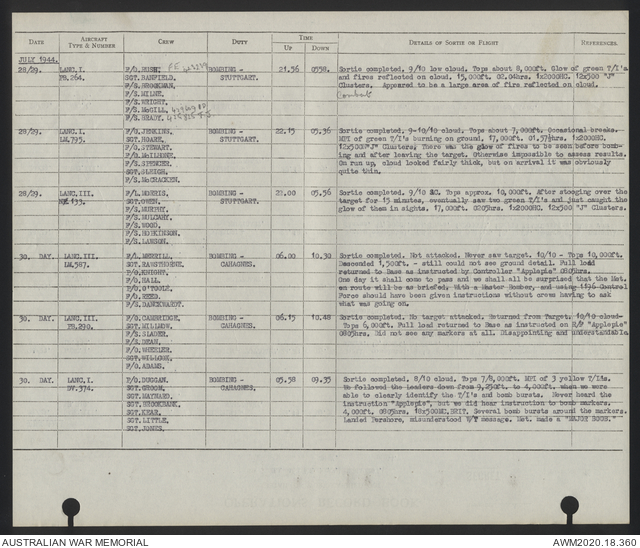 DATE AIRCRAFT TYPE & NUMBER CREW DUTY TIME UP DOWN DETAILS OF SORTIE OR FLIGHT REFERENCES.
JULY 1944.
28/29. LANC.I. PB.264. F/O. BUSBY BOMBING - STUTTGART. 21.56 0558. Sortie completed. 9/10 low cloud. Tops about 8,000ft. Glow of green T/I's
SGT. BANFIELD. and fires reflected on cloud. 15,000ft. 02.04hrs. 1x2000HC. 12x500 "J"
F/S. BROOKMAN. Clusters. Appeared to be a large area of fire reflected on cloud.
F/S. MILNE. Combats
F/S. WRIGHT.
F/S. McGILL.
F/S. READY.
28/29. LANC.I. LM.795. F/O. JENKINS. BOMBING - STUTTGART. 22.15 05.36 Sortie completed. 9-10/10 cloud. Tops about 7,000ft. Occasional breaks.
SGT. HOARE. MPI of green T/I's burning on ground. 17,000ft. 01.57½hrs. 1x2000HC.
F/O. STEWART. 12x500"J" Clusters. There was the glow of fires to be seen before bomb-
F/S. McILHONE. ing and after leaving the target. Otherwise impossible to assess results.
F/S. SPENCER. On run up, cloud looked fairly thick, but on arrival it was obviously
SGT. SLEIGH. quite thin.
F/S. McCRACKEN.
28/29. LANC.III. 133. F/L. MORRIS. BOMBING - STUTTGART. 22.00 05.56 Sortie completed. 9/10 SC. Tops approx. 10,000ft. After stooging over the
SGT. OWEN. target for 15 minutes, eventually saw two green T/I's and just caught the
F/S. MURPHY. glow of them in sights. 17,000ft. 0205hrs. 1x2000HC. 12x500 "J" Clusters.
F/S. MULCAHY.
F/S. WOOD.
F/S. HOPKINSON.
F/S. LAWSON.
30. DAY. LANC.III. LM.587. F/L. MERRILL. BOMBING - CAHAGNES. 06.00 10.30 Sortie completed. Not attacked. Never saw target. 10/10 - Tops 10,000ft.
SGT. HAWSTHORNE. Descended 1,500ft. - still could not see ground detail. Full load
F/O. KNIGHT. returned to Base as instructed by Controller "Applepie" 0805hrs.
F/O. HALL. One day it shall come to pass and we shall all be surprised that the Met.
F/S. O'TOOLE. en route will be as briefed. With a Master Bomber, and using 1196 Control
F/O. REED. Force should have been given instructions without crews having to ask
F/S. what was going on.
30. DAY. LANC.III. PB.290. F/O. CAMBRIDGE. BOMBING - CAHAGNES. 06.15 10.48 Sortie completed. No target attacked. Returned from Target. 10/10 cloud-
SGT. MILLHOW. Tops 6,000ft. Full load returned to Base as instructed on R/T "Applepie"
F/S. SLADER. 0805hrs. Did not see any markers at all. Disappointing and understandable.
F/S. DEAN.
F/O. WHEELER.
SGT. WILLCOX.
F/O. ADAMS.
30. DAY. LANC.I. SV.374. F/O. DUGGAN. BOMBING - CAHAGNES. 05.58 09.35 Sortie completed. 8/10 cloud. Tops 7/8,000ft. MPI of 3 yellow T/I's.
SGT. GROOM. We followed the Leaders down from 9,250ft. to 4,000ft. when we were
SGT. MAYNARD. able to clearly identify the T/I's and bomb bursts. Never heard the
SGT. BROOKBANK. instruction "Applepie", but we did hear instruction to bomb markers.
SGT. KEAR. 4,000ft. 0805hrs. 18x500MC. Several bomb bursts around the markers.
SGT. LITTLE. Landed Pershore, misunderstood W/T message. Met. made a "MAJOR BOOB."
SGT. JONES.
AUSTRALIAN WAR MEMORIAL AWM2020.18.360